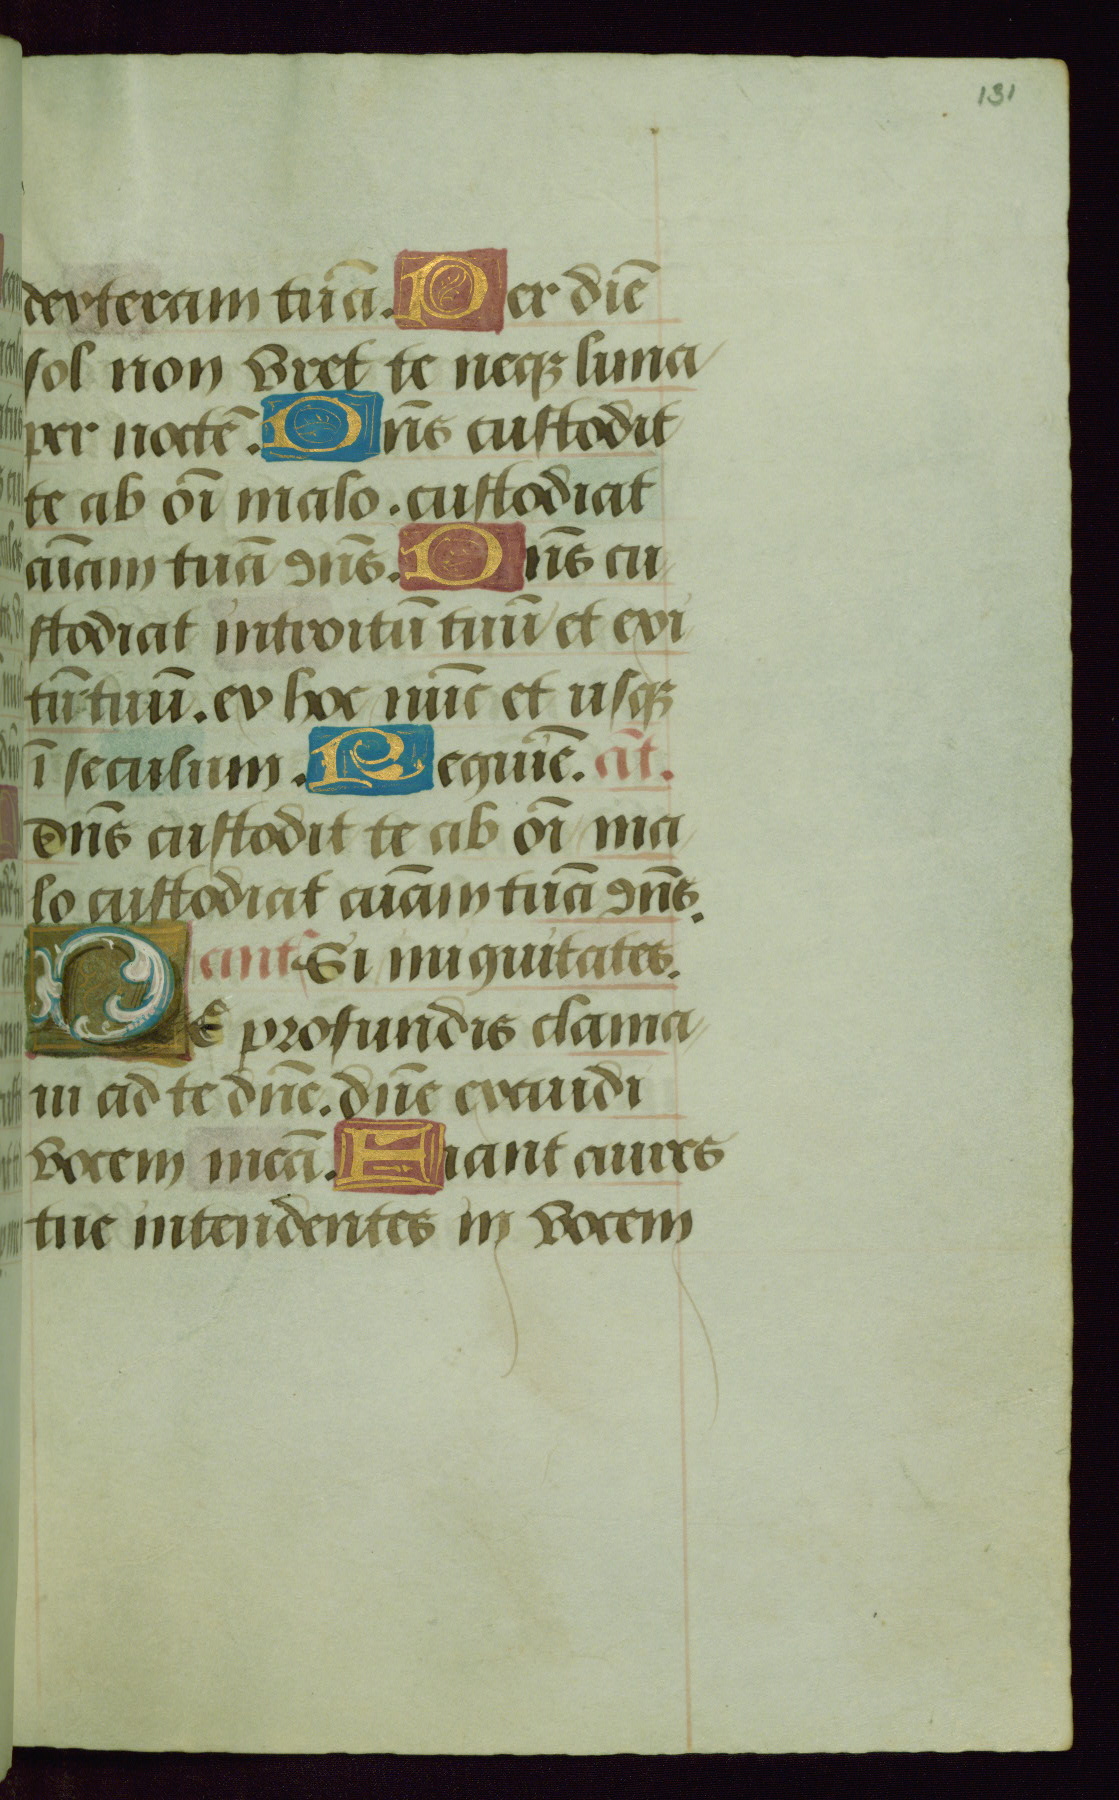 131
dexteram tuā. Per diē
sol non vret te neqꝫ luna
per noctē. Dn̄s custodit
te ab oī malo. custodiat
aīam tuā dn̄s. Dn̄s cu
stodiat introitū tuū et exi
tū tuū. ex hoc nūc et usqꝫ
ī seculum. Requiē. āt.
Dn̄s custodit te ab oī ma
lo custodiat aīam tuā dn̄s.
ant Si iniquitates.
De profundis clama
ui ad te dn̄e. dn̄e exaudi
vocem meā. Fiant aures
tue intendentes in vocem